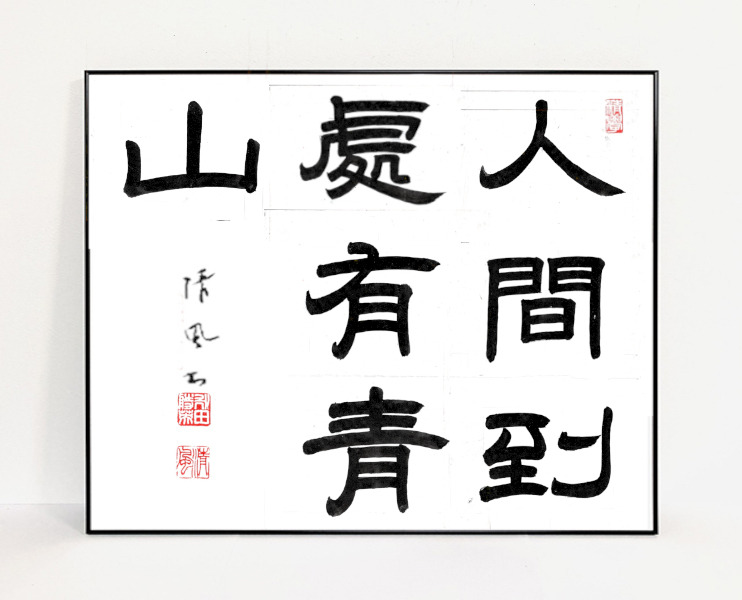 人間到
處有青
山
清風书